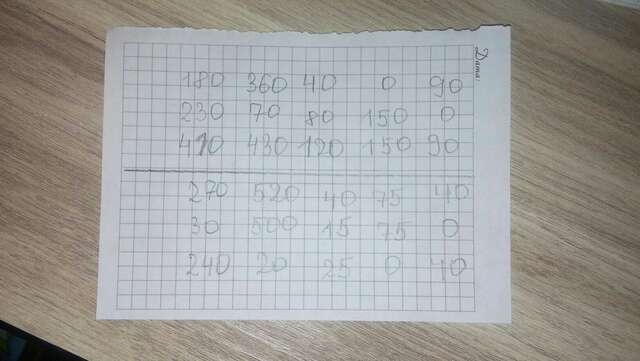 Дата:
180 360 40 0 90
230 70 80 150 0
410 430 120 150 90
270 520 40 75 40
30 500 15 75 0
240 20 25 0 40